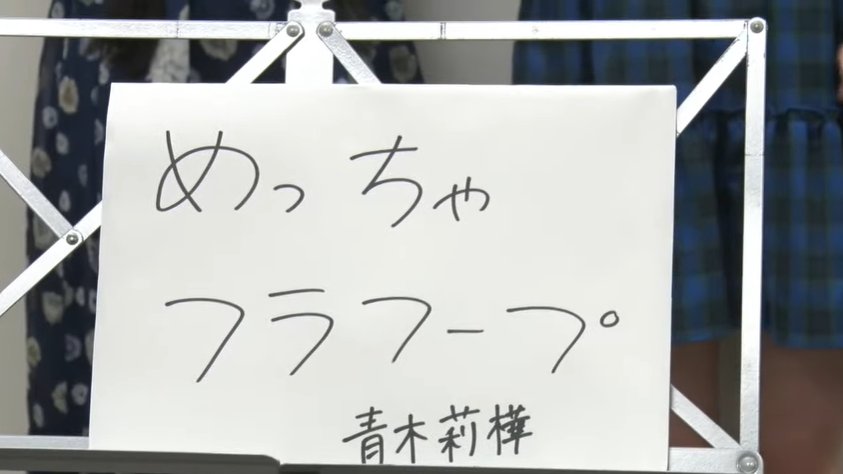 めっちゃ
フラフープ
青木莉樺